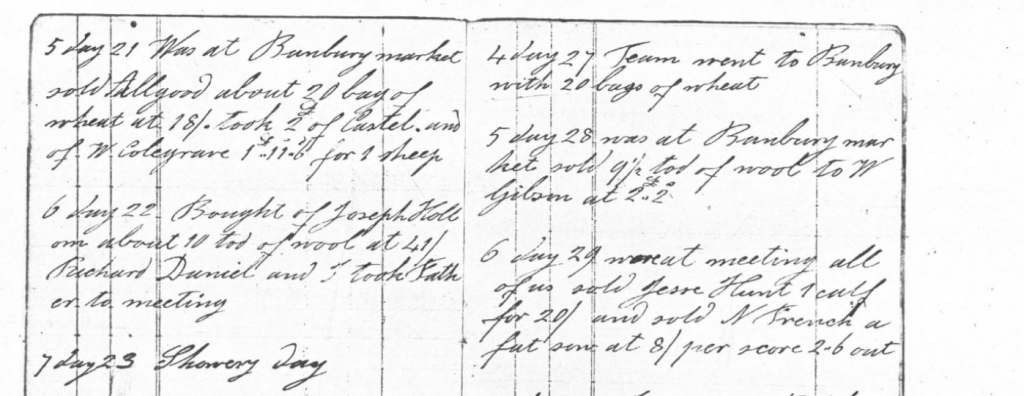 5 day 21 Was at Banbury market
sold Allgood about 20 bag of
wheat at 18/. took 2£ of Castel. and
of W Colegrave 1£-11-6 for 1 sheep
6 day 22 Bought of Joseph Holl
om about 10 tod of wool at 41/
Richard Daniel and I took Fath
er to meeting
7 day 23 Showery day
4 day 27 Team went to Banbury
with 20 bags of wheat
5 day 28 was at Banbury mar
ket sold 9½ tod of wool to W
Gilson at 2£-2
6 day 29 were at meeting all
of us sold Jesse Hunt 1 calf
for 20/ and sold N French a
fat sow at 8/ per score 2-6 out